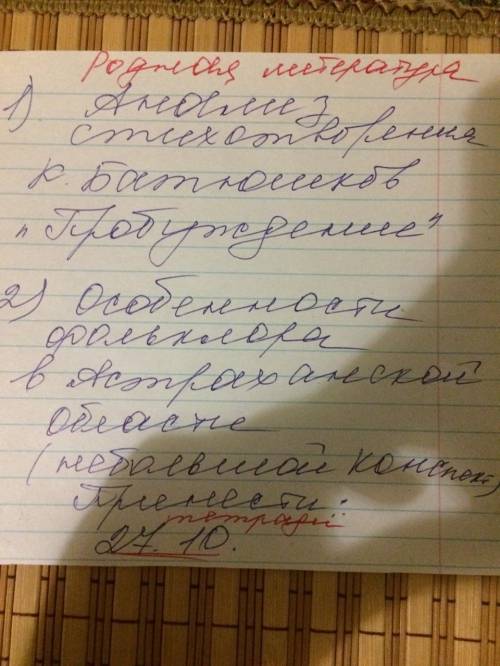 Родная литература
1) Анализ
стихотворения
К. Батюшков
"Пробуждение"
2) Особенности
фольклора
в Астраханской
области
(небольшой конспект)
Принести
тетради
27. 10.